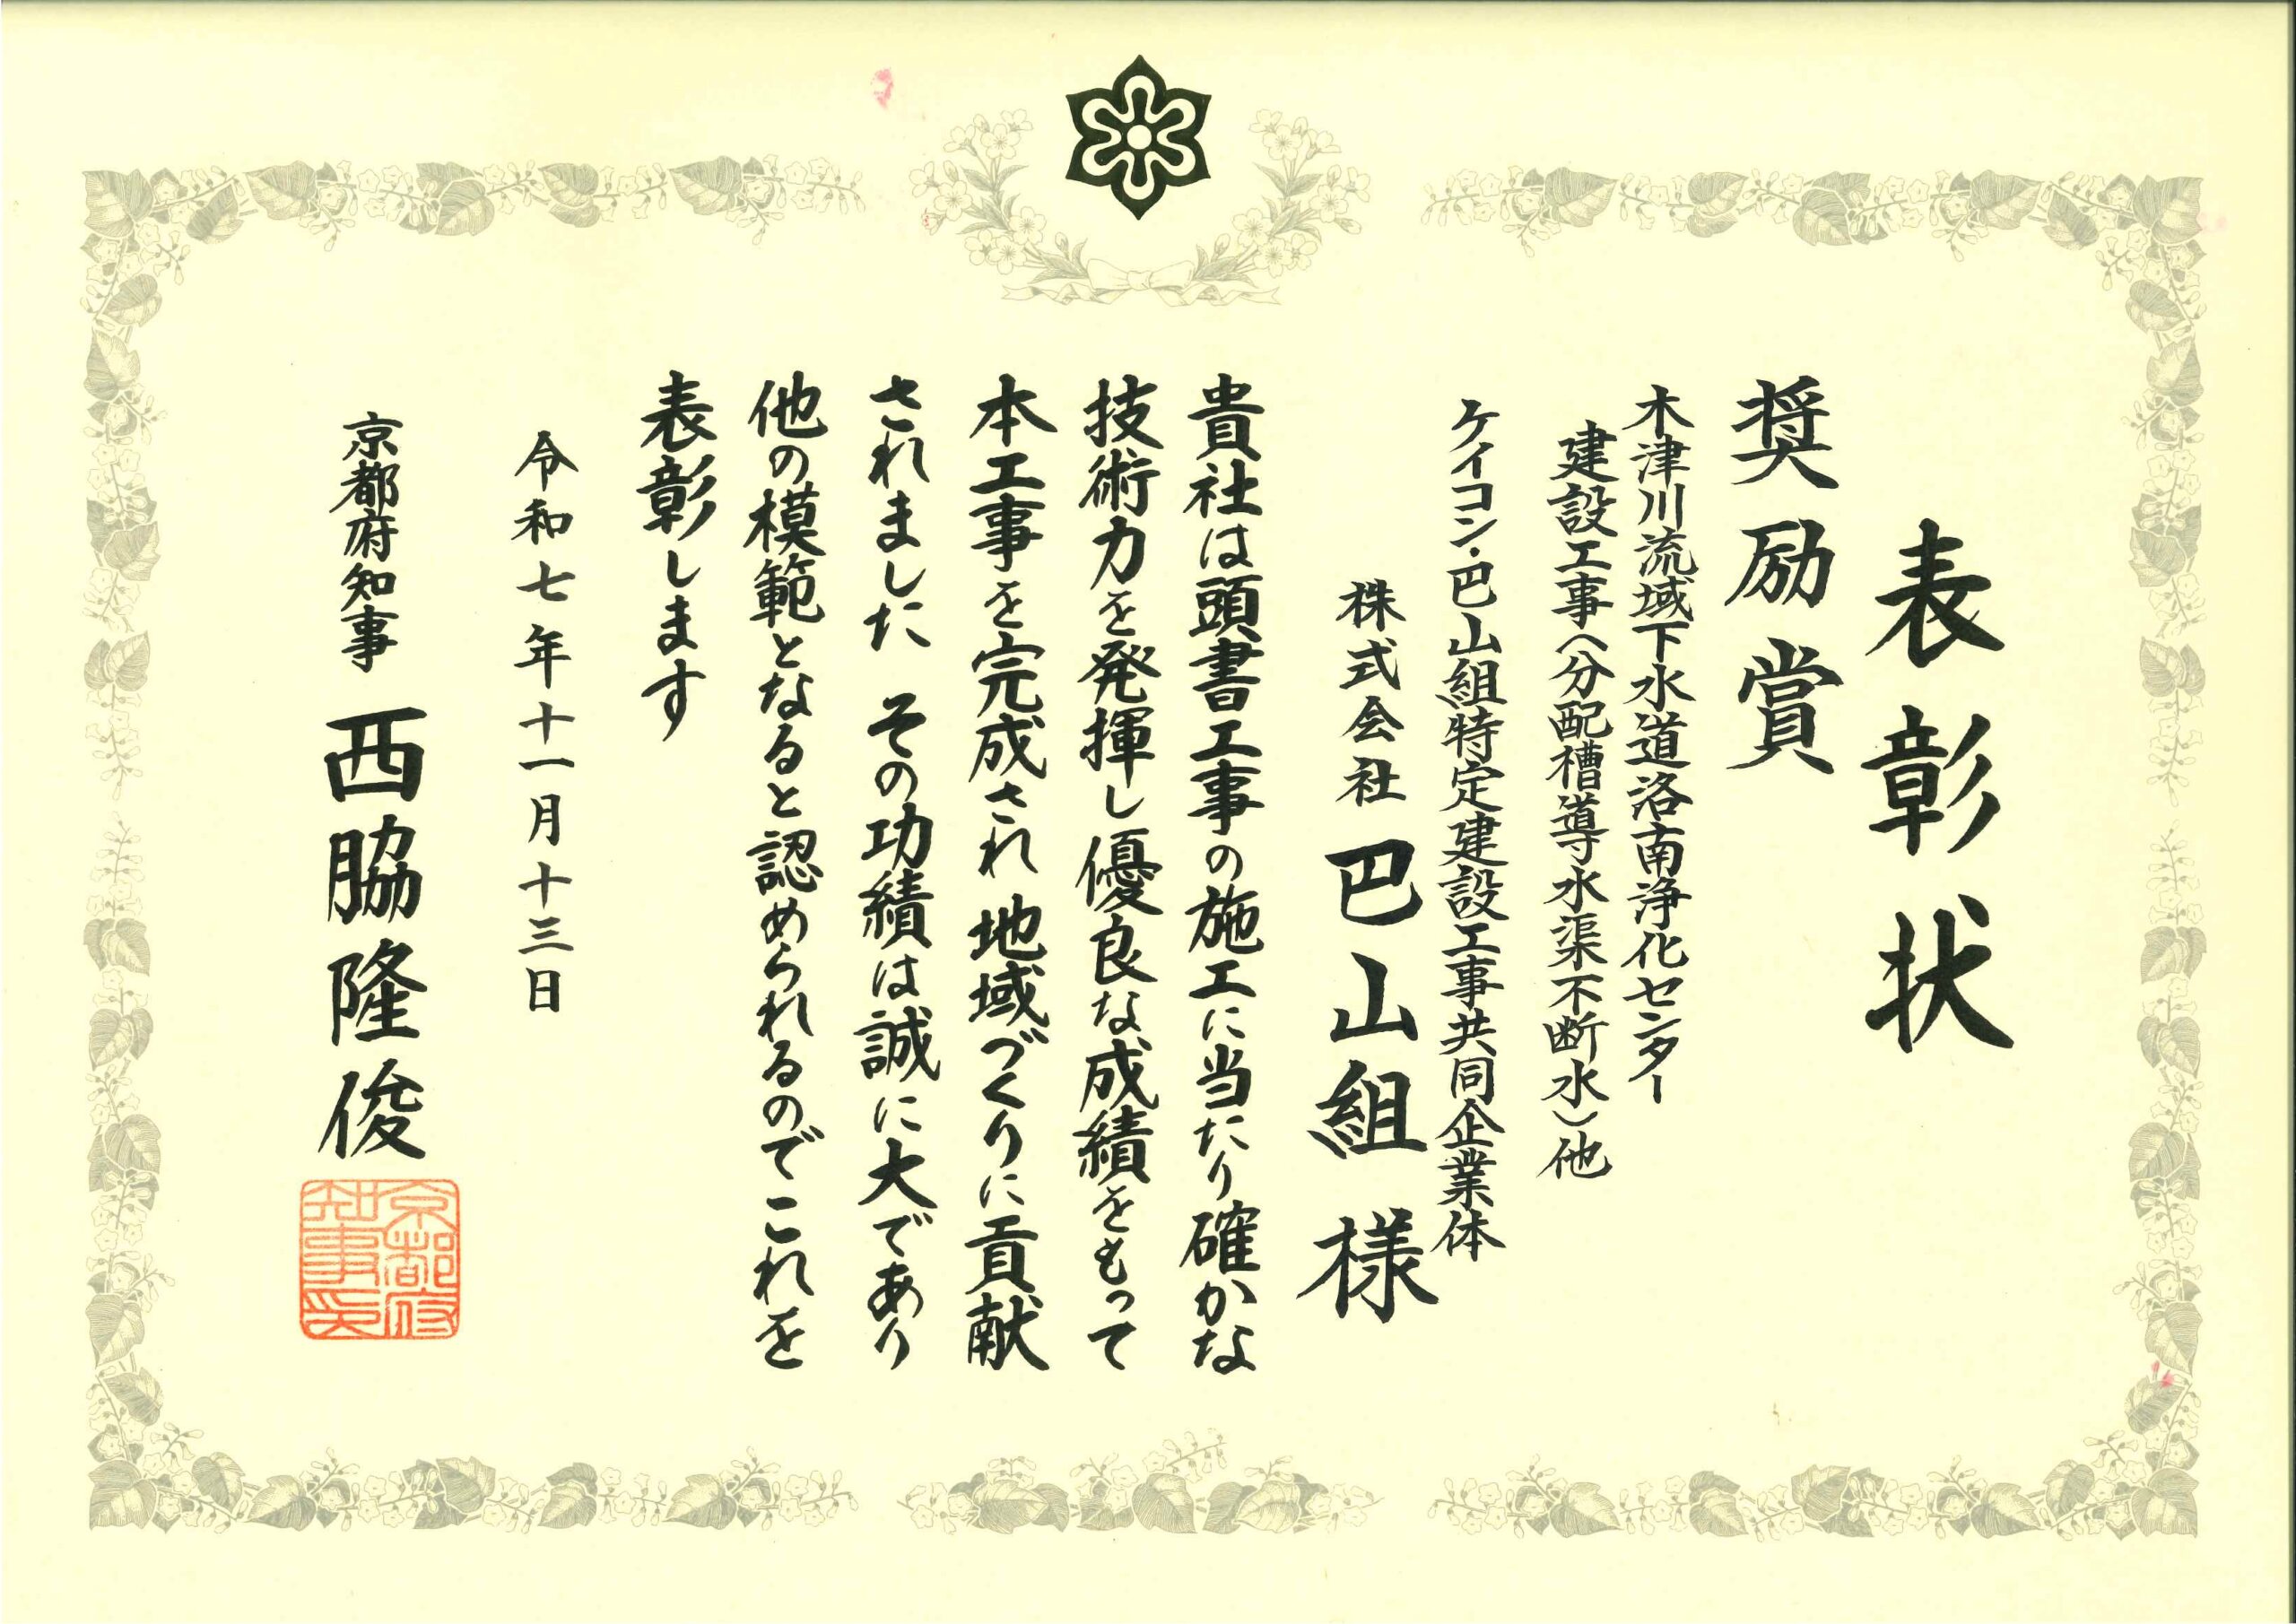 表彰状
奨励賞
木津川流域下水道洛南浄化センター
建設工事(分配槽導水渠不断水)他
ケイコン・巴山組特定建設工事共同企業体
株式会社 巴山組 様
貴社は頭書工事の施工に当たり確かな
技術力を発揮し優良な成績をもって
本工事を完成され 地域づくりに貢献
されました その功績は誠に大であり
他の模範となると認められるのでこれを
表彰します
令和七年十一月十三日
京都府知事 西脇隆俊
京都府
知事印